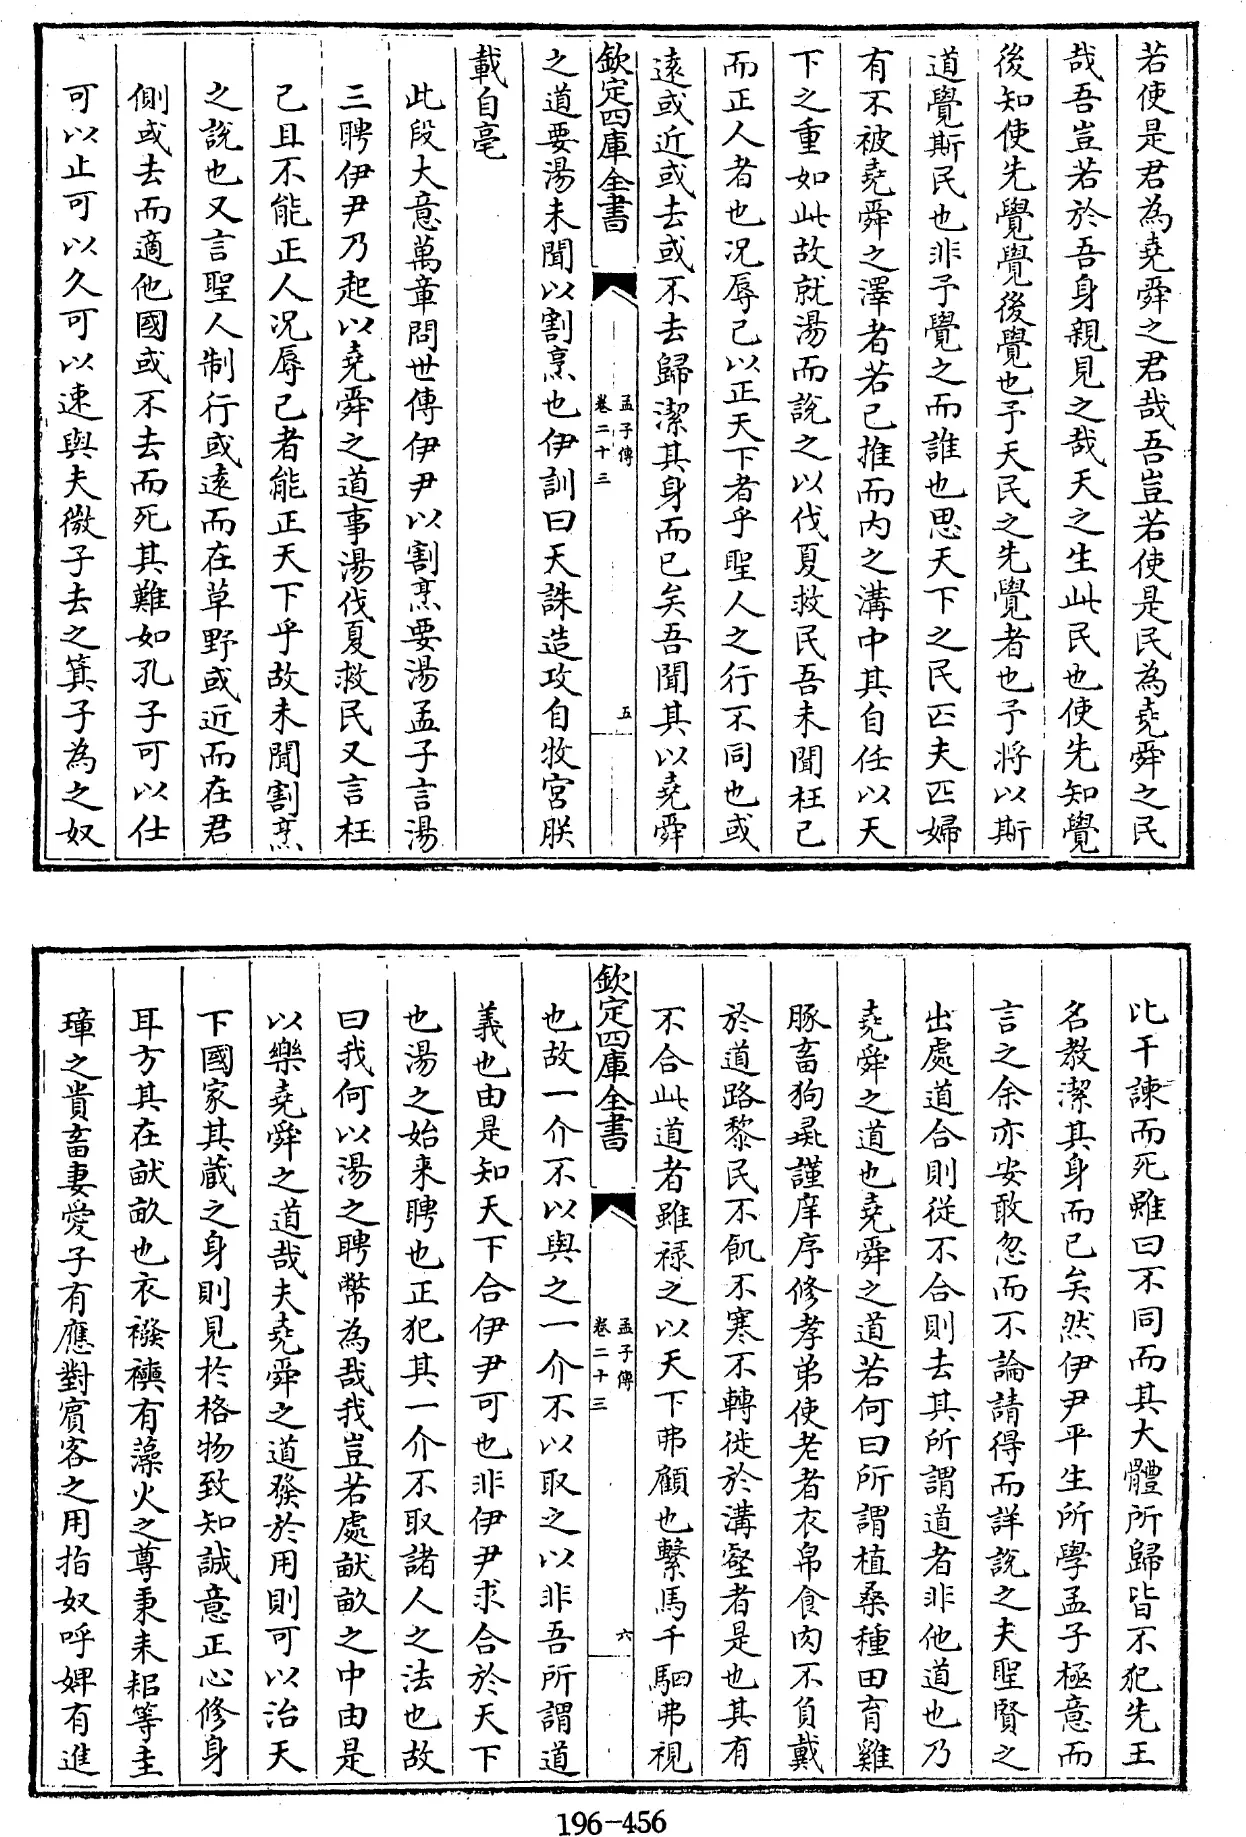 若使是君為堯舜之君哉吾豈若使是民為堯舜之民
哉吾豈若於吾身親見之哉天之生此民也使先知覺
後知使先覺覺後覺也予天民之先覺者也予將以斯
道覺斯民也非予覺之而誰也思天下之民匹夫匹婦
有不被堯舜之澤者若己推而内之溝中其自任以天
下之重如此故就湯而說之以伐夏救民吾未聞枉己
而正人者也况辱己以正天下者乎聖人之行不同也或
逺或近或去或不去歸潔其身而已矣吾聞其以堯舜
欽定四庫全書
孟子傳
卷二十三
五
之道要湯未聞以割烹也伊訓曰天誅造攻自牧宫朕
載自亳
此段大意萬章問世傳伊尹以割烹要湯孟子言湯
三聘伊尹乃起以堯舜之道事湯伐夏救民又言枉
己且不能正人况辱己者能正天下乎故未聞割烹
之說也又言聖人制行或逺而在草野或近而在君
側或去而適他國或不去而死其難如孔子可以仕
可以止可以久可以速與夫微子去之箕子為之奴
比干諫而死雖曰不同而其大體所歸皆不犯先王
名教潔其身而已矣然伊尹平生所學孟子極意而
言之余亦安敢忽而不論請得而詳說之夫聖賢之
出處道合則從不合則去其所謂道者非他道也乃
堯舜之道也堯舜之道若何曰所謂植桑種田育雞
豚畜狗彘謹庠序修孝弟使老者衣帛食肉不負戴
於道路黎民不飢不寒不轉徙於溝壑者是也其有
不合此道者雖禄之以天下弗顧也繫馬千駟弗視
欽定四庫全書
孟子傳
卷二十三
六
也故一介不以與之一介不以取之以非吾所謂道
義也由是知天下合伊尹可也非伊尹求合於天下
也湯之始来聘也正犯其一介不取諸人之法也故
曰我何以湯之聘幣為哉我豈若處畎畝之中由是
以樂堯舜之道哉夫堯舜之道發於用則可以治天
下國家其藏之身則見於格物致知誠意正心修身
耳方其在畎畝也衣襏襫有藻火之尊秉耒耜等圭
璋之貴畜妻愛子有應對賓客之用指奴呼婢有進
196-456